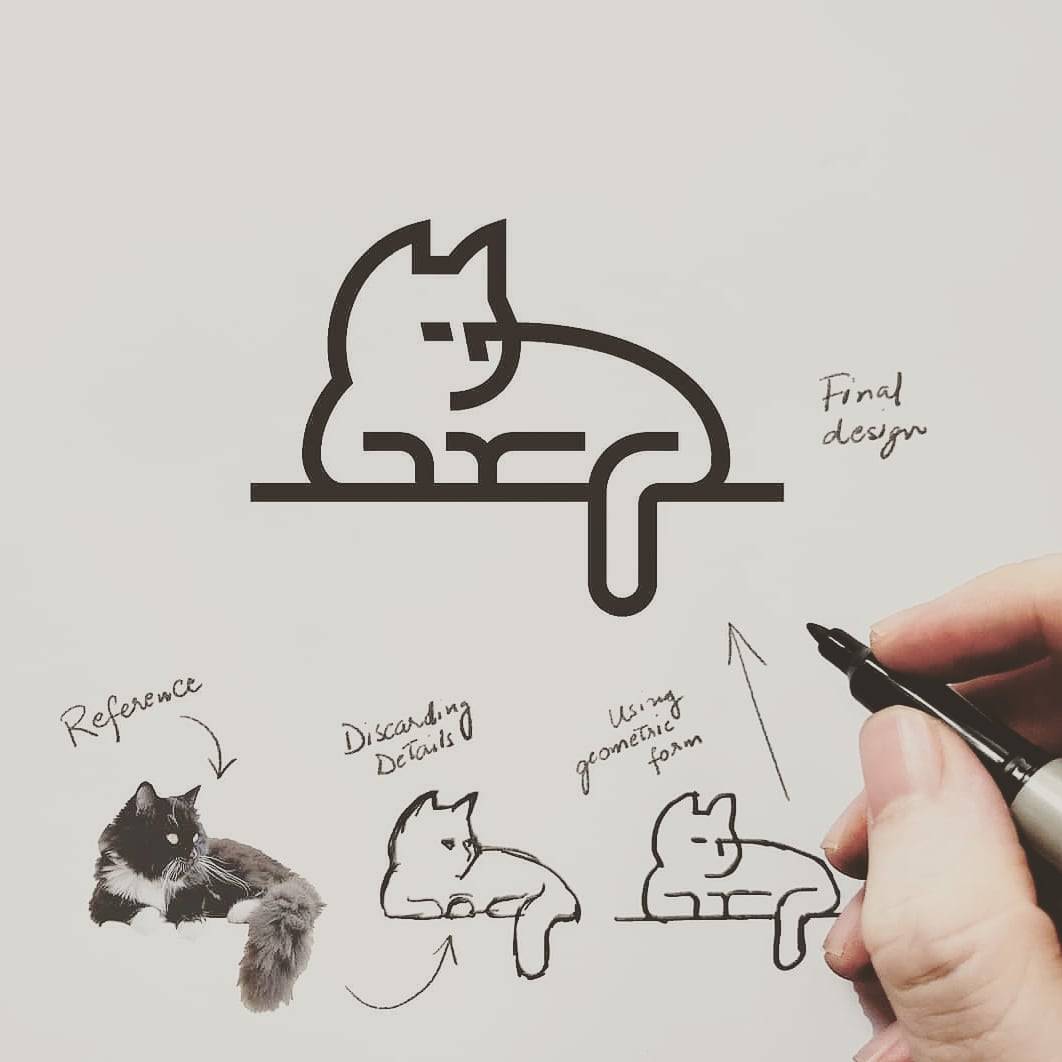 Final
design
Reference
Discarding
Details
Using
geometric
form